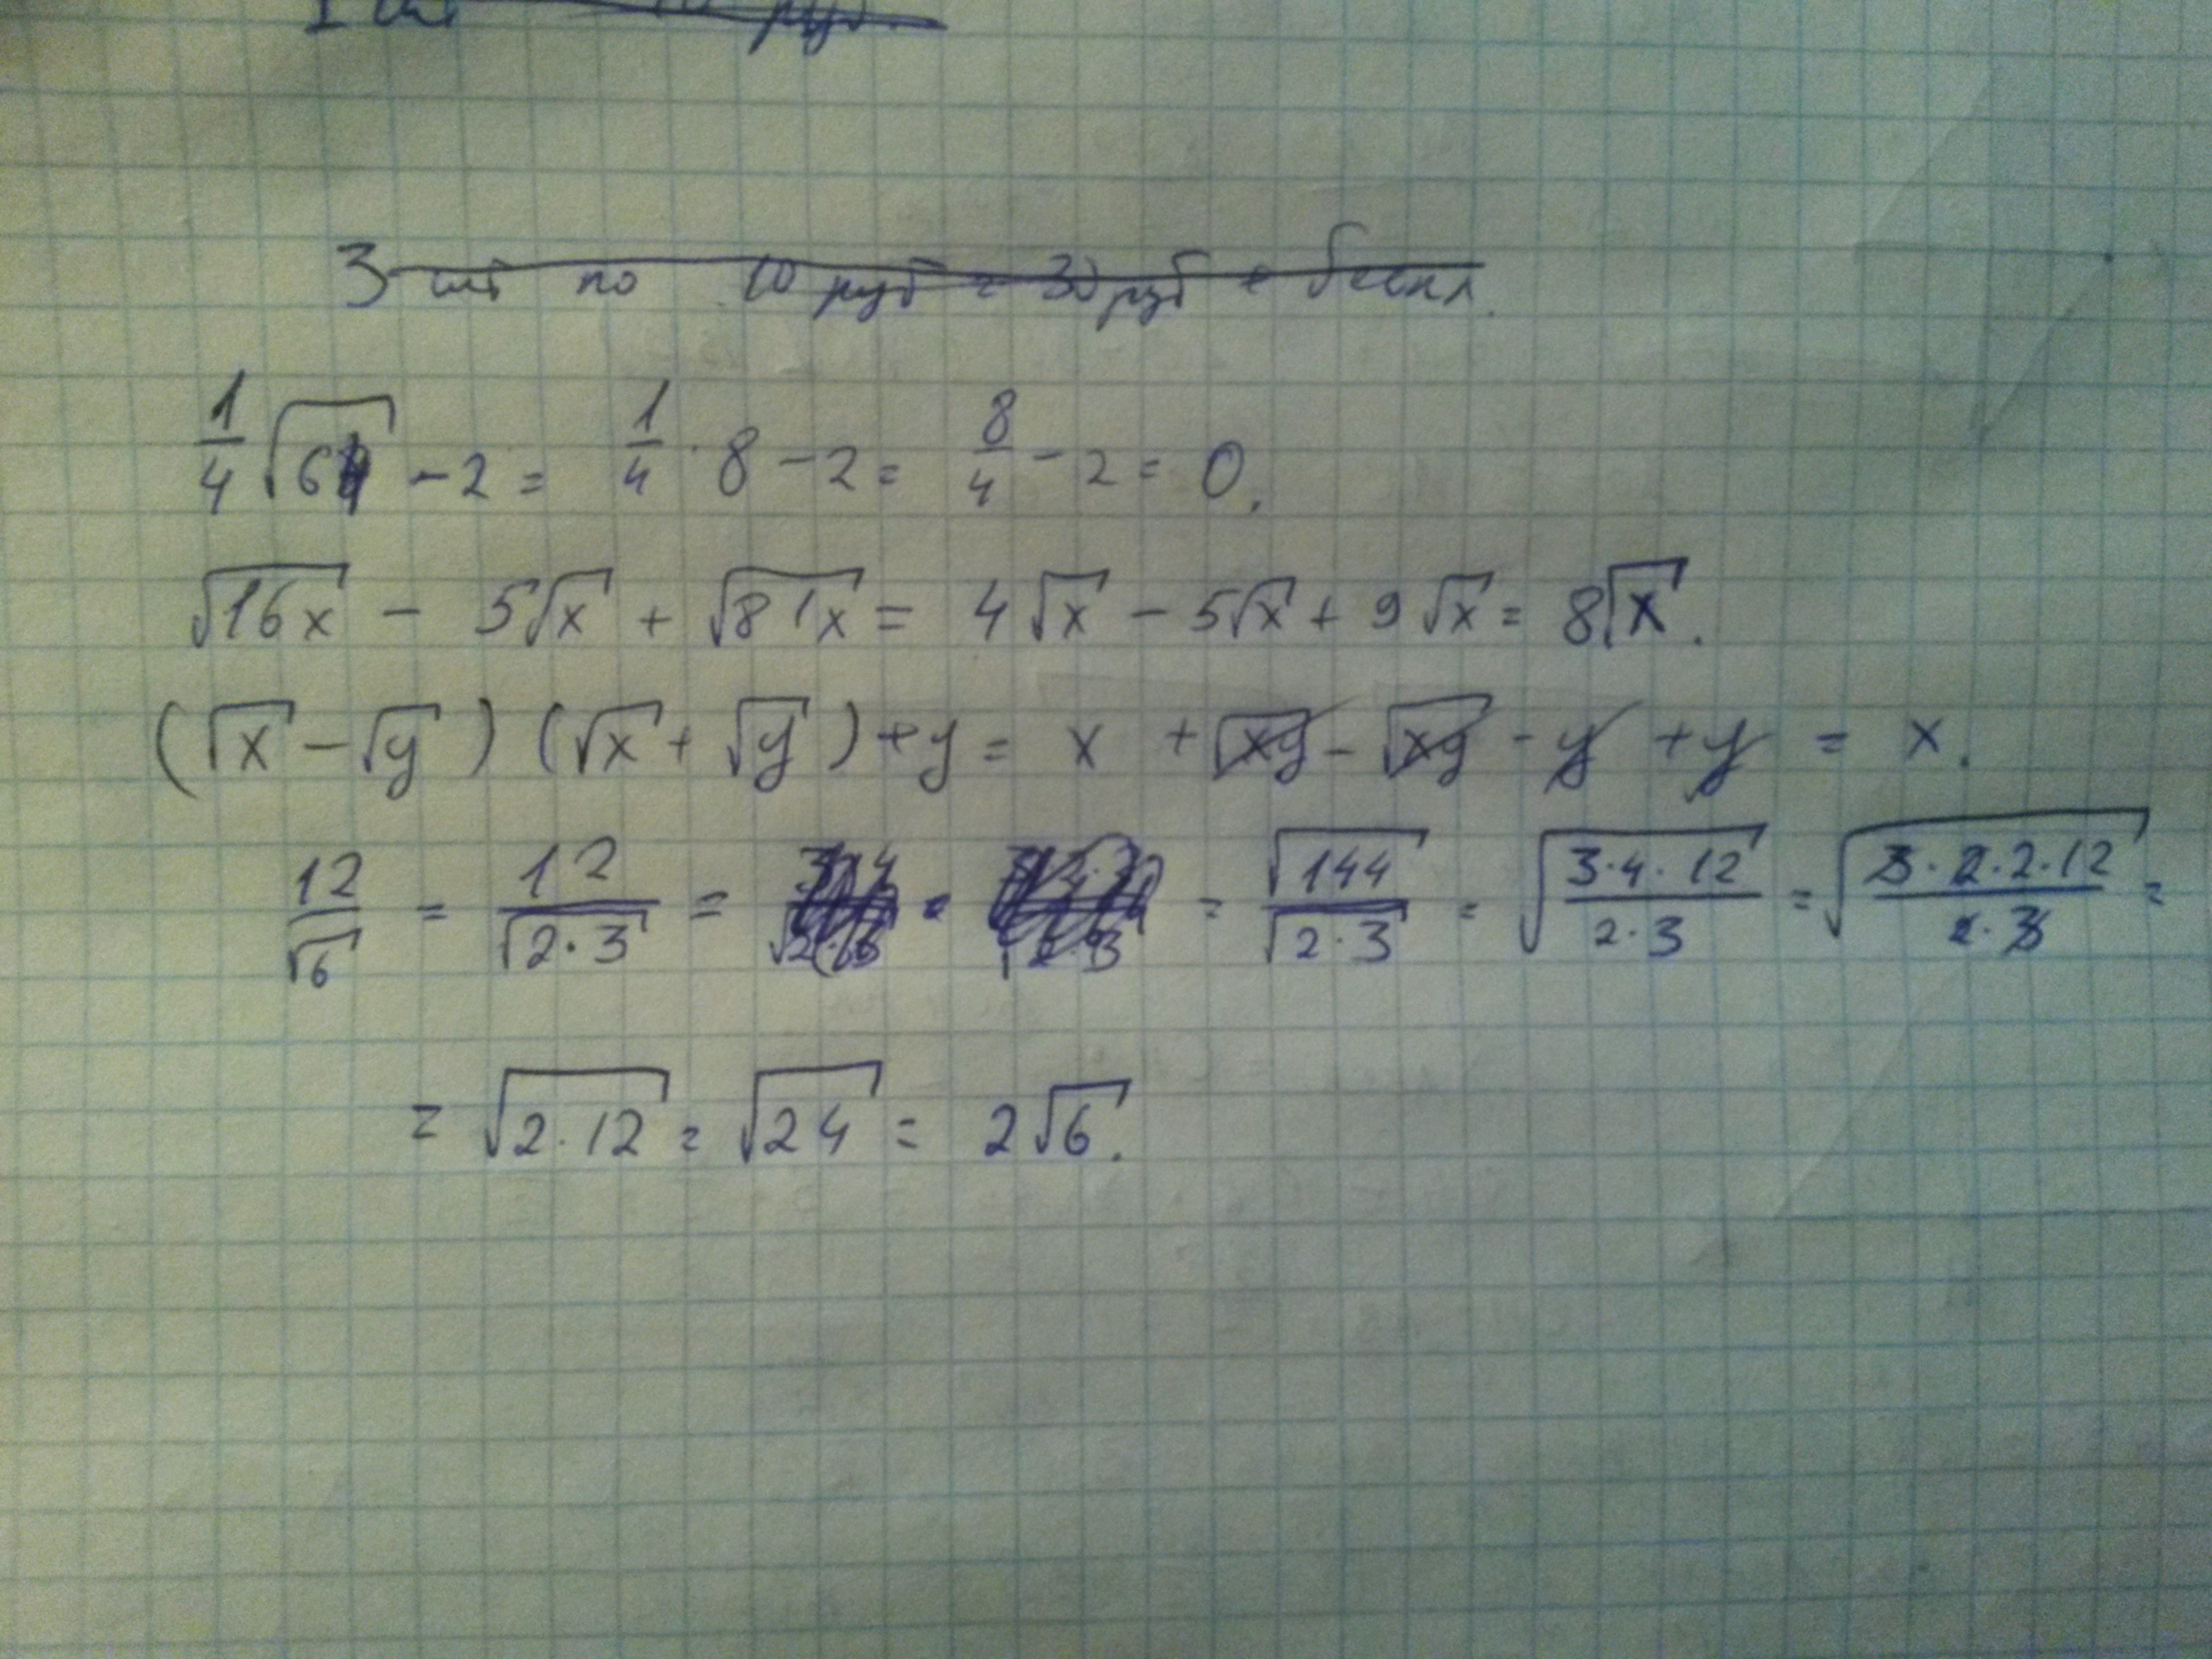 1 шт 10 руб.
3 шт по 10 руб = 30 руб + беспл.
1/4 √64 - 2 = 1/4 · 8 - 2 = 8/4 - 2 = 0.
√16x - 5√x + √81x = 4√x - 5√x + 9√x = 8√x.
(√x - √y) (√x + √y) + y = x + √xy - √xy - y + y = x.
12/√6 = 12/√2·3 = = √144/√2·3 = √(3·4·12/2·3) = √(3·2·2·12/2·3) =
= √2·12 = √24 = 2√6.